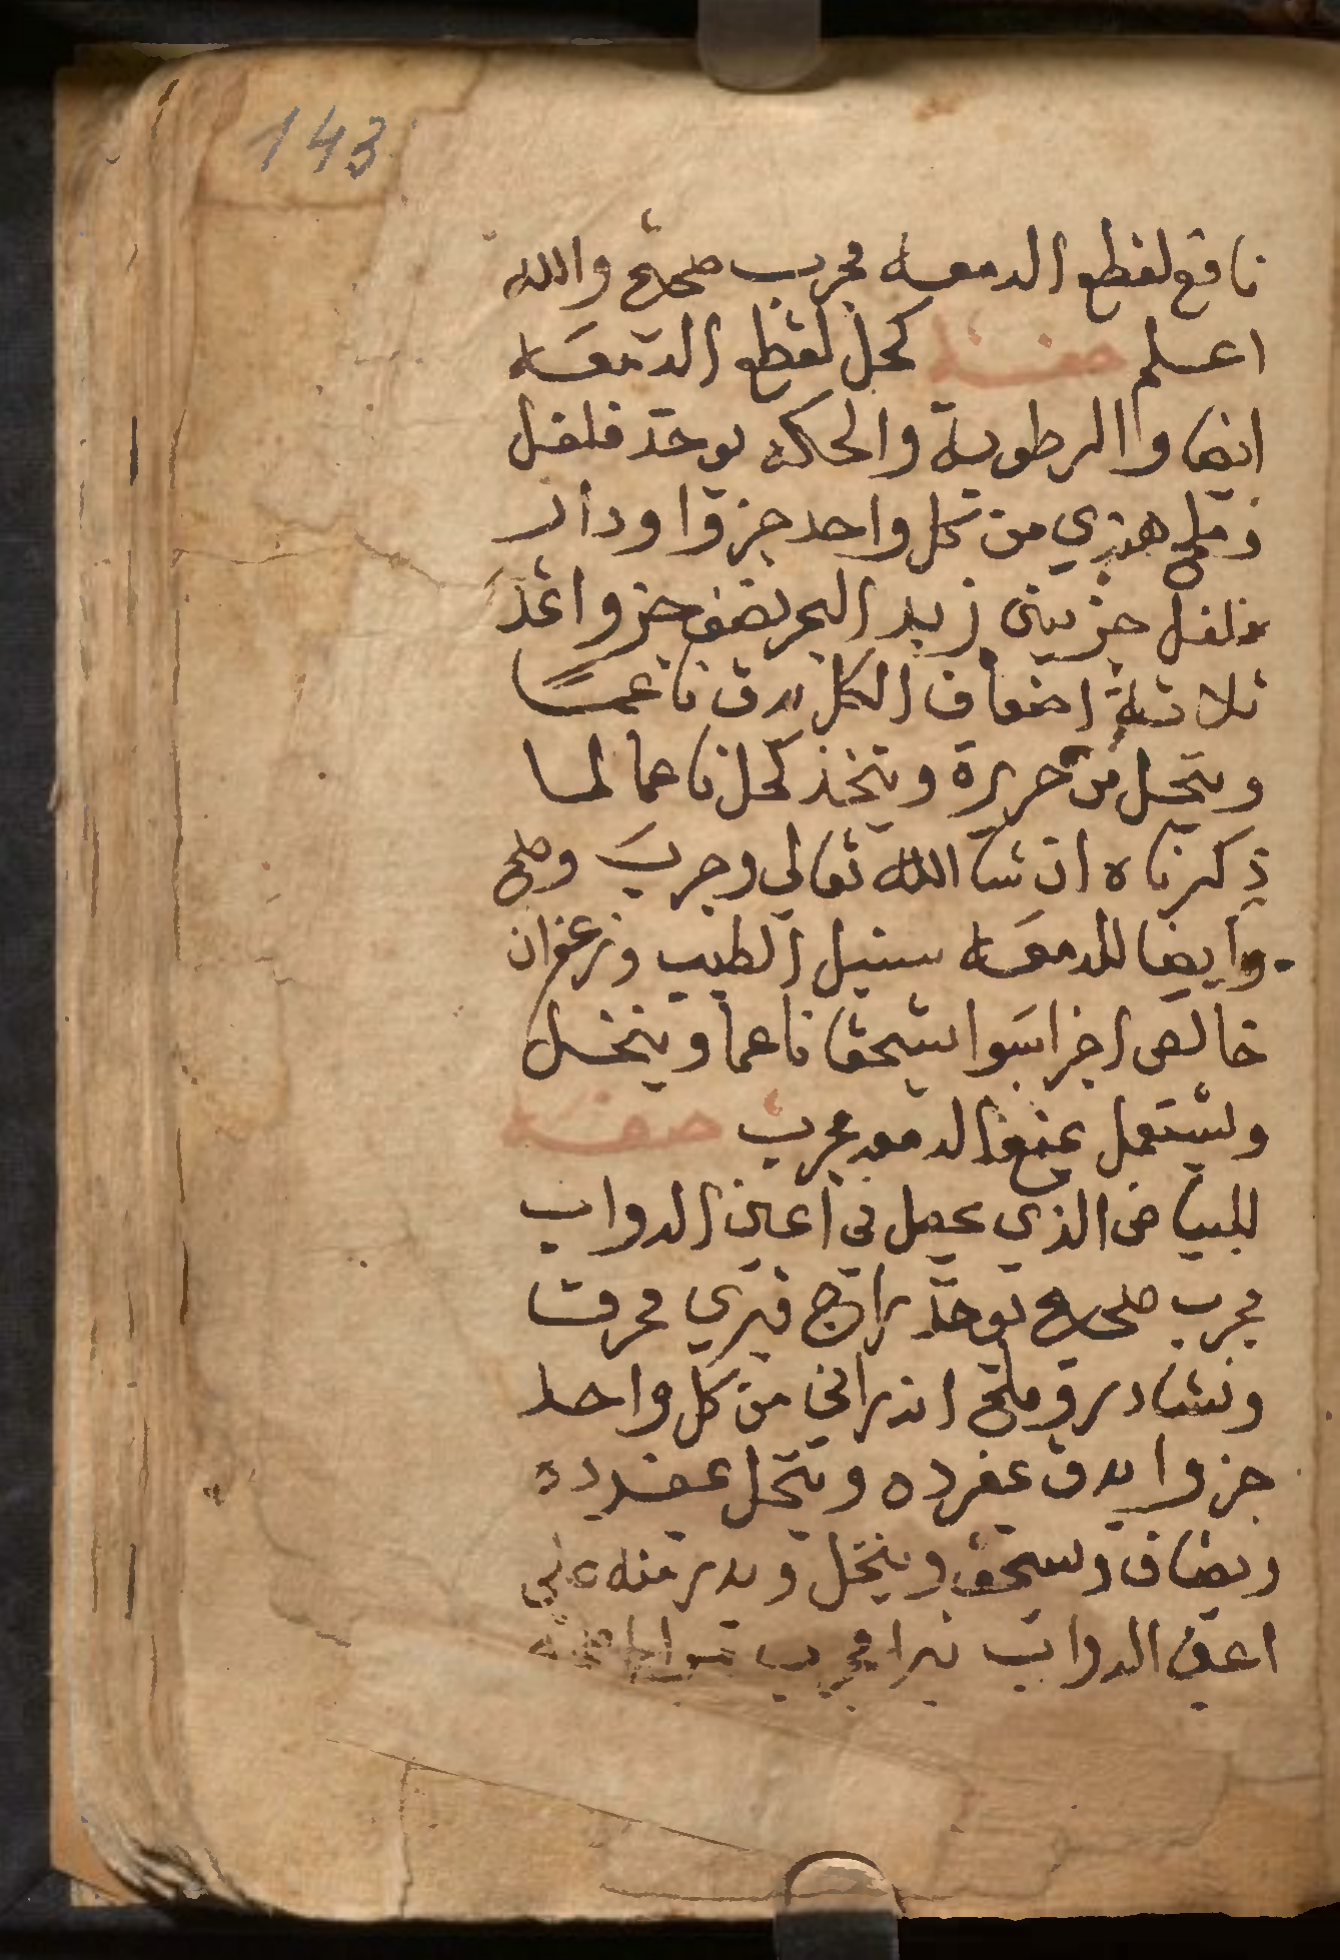 143
نافع لقطع الدمعه مجرب صحيح والله
اعلم صفة كحل لقطع الدمعه
ايضا والرطوبة والحكه يوخذ فلفل
وملح هندي من كل واحد جزوا ودار
فلفل جزيين زبد البحر نصف جزوا اثمد
ثلاثة اضعاف الكل يدق ناعمًا
وينخل من حريرة ويتخذ كحل ناعما لما
ذكرناه ان شا الله تعالي وجرب وصح
وايضا للدمعه سنبل الطيب وزعفران
خالص اجزا سوا يسحق ناعما وينخل
ويستعمل يمنع الدمعه مجرب صفه
للبياض الذي يحصل في اعين الدواب
مجرب صحيح يوخذ زاج قبرسي محرق
ونشادر وملح اندراني من كل واحد
جزوا يدق بمفرده وينخل بمفرده
ويضاف ويسحق وينخل ويدر منه علي
اعين الدواب تبرا مجرب